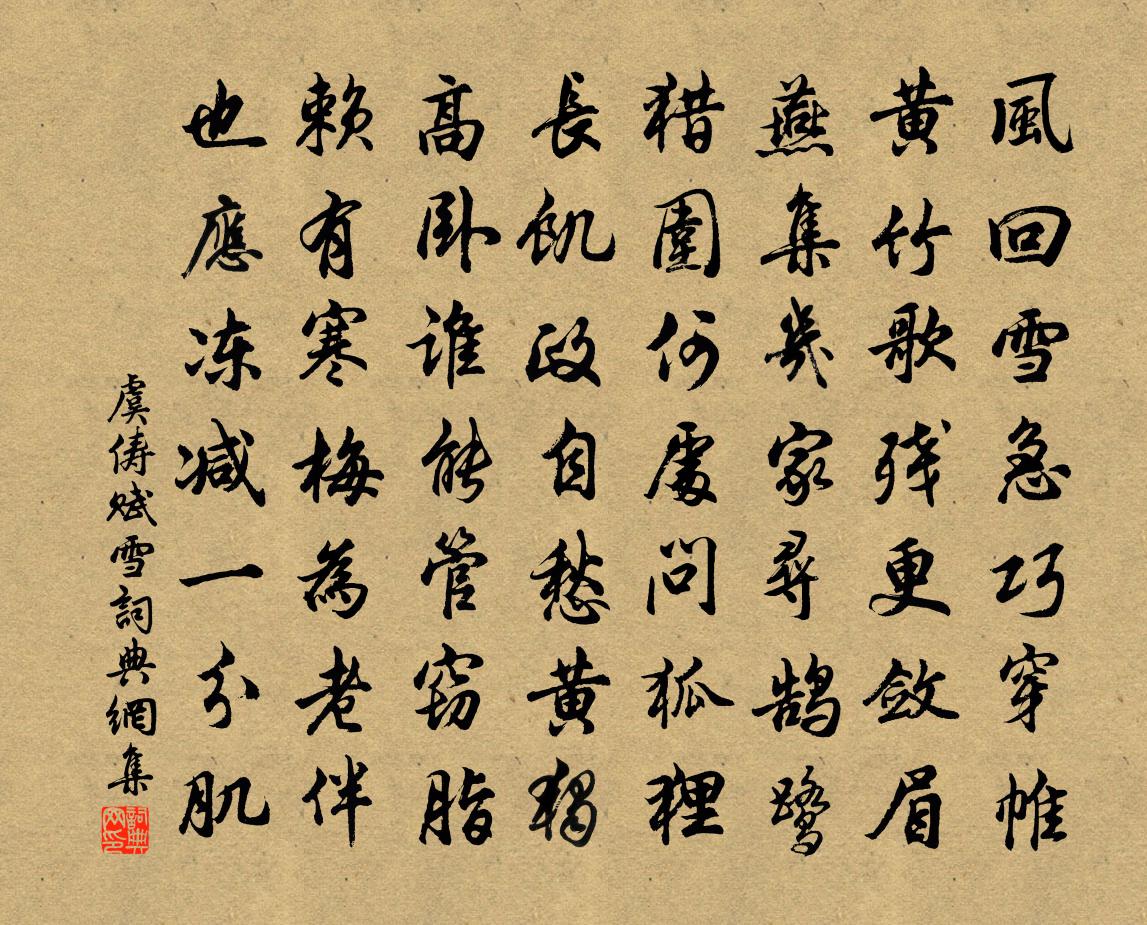 風回雪急巧穿帷
黃竹歌殘更斂眉
燕集幾家尋鵠鷺
猎圍何處問狐狸
長飢政自愁黃獨
高卧誰能管窃脂
賴有寒梅為老伴
也應冻减一分肌
虞儔賦雪詞典網集
詞典网印